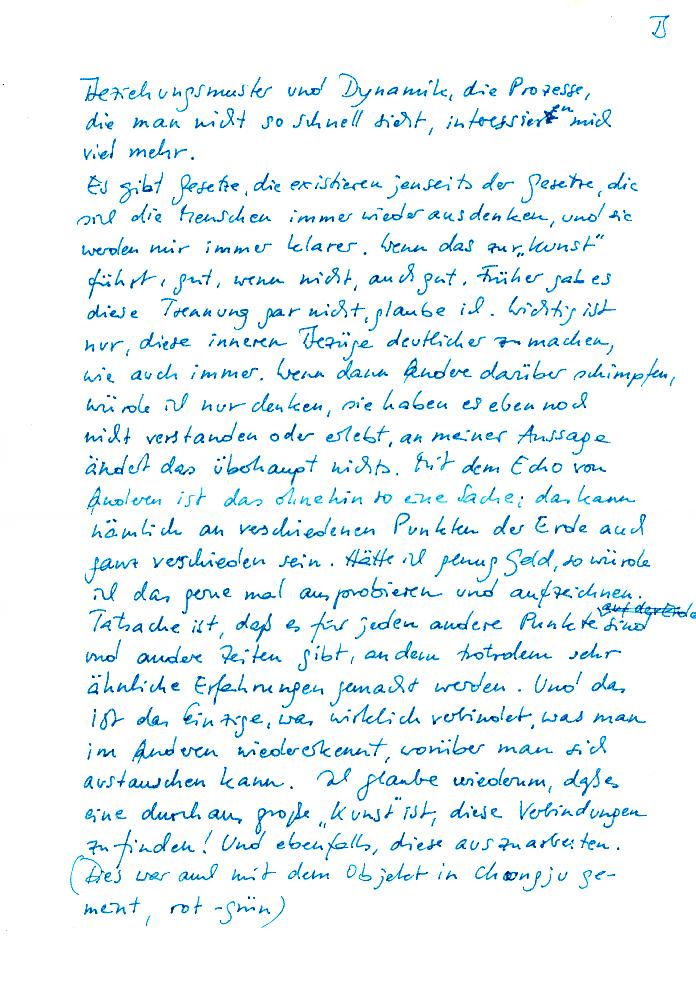 II
Beziehungsmuster und Dynamik, die Prozesse,
die man nicht so schnell sieht, interessieren mich
viel mehr.
Es gibt Gesetze, die existieren jenseits der Gesetze, die
sich die Menschen immer wieder ausdenken, und sie
werden mir immer klarer. Wenn das zur „Kunst“
führt, gut, wenn nicht, auch gut. Früher gab es
diese Trennung gar nicht, glaube ich. Wichtig ist
nur, diese inneren Bezüge deutlicher zu machen,
wie auch immer. Wenn dann Andere darüber schimpfen,
würde ich nur denken, sie haben es eben noch
nicht verstanden oder erlebt, an meiner Aussage
ändert das überhaupt nichts. Mit dem Echo von
Anderen ist das ohnehin so eine Sache; das kann
nämlich an verschiedenen Punkten der Erde auch
ganz verschieden sein. Hätte ich genug Geld, so würde
ich das gerne mal ausprobieren und aufzeichnen.
Tatsache ist, daß es für jeden andere Punkte auf der Erde sind
und andere Zeiten gibt, an dem trotzdem sehr
ähnliche Erfahrungen gemacht werden. Und das
ist das Einzige, was wirklich verbindet, was man
im Anderen wiedererkennt, worüber man sich
austauschen kann. Ich glaube wiederum, daß es
eine durchaus große „Kunst“ ist, diese Verbindungen
zu finden! Und ebenfalls, diese auszuarbeiten.
(Dies war auch mit dem Objekt in Choongju ge-
meint, rot-grün)